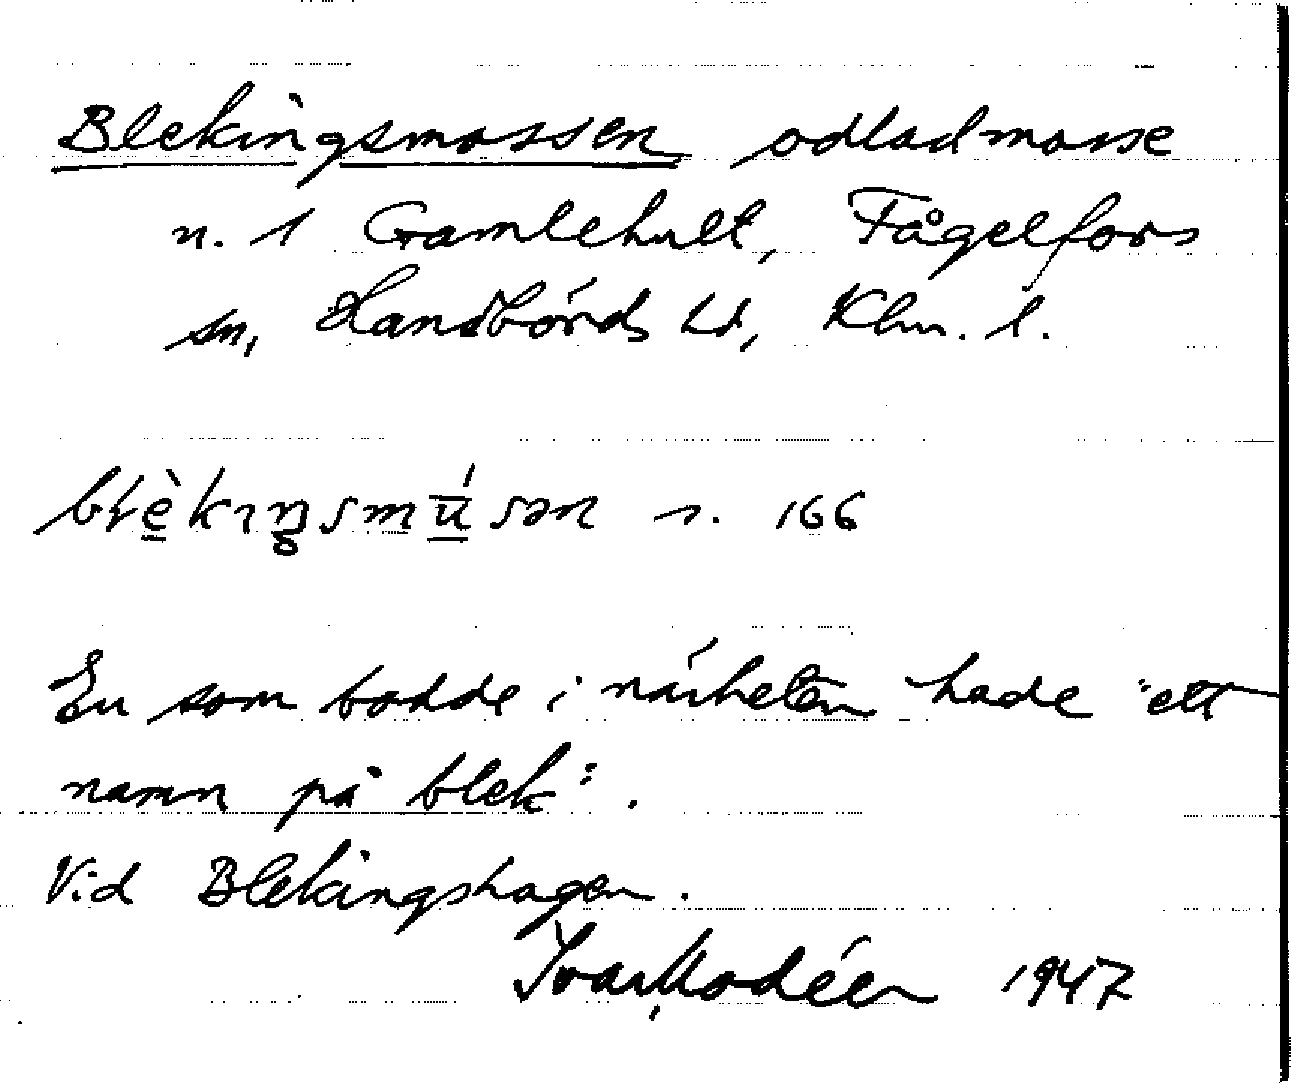 Blekingsmossen odlad mosse
n. 1 Gamlehult, Fågelfors
sn, Handbörds hd, Klm. l.
blèkıŋsmúsən s. 166
En som bodde i närheten hade "ett
namn på blek".
Vid Blekingshagen.
Ivar Modéer 1947